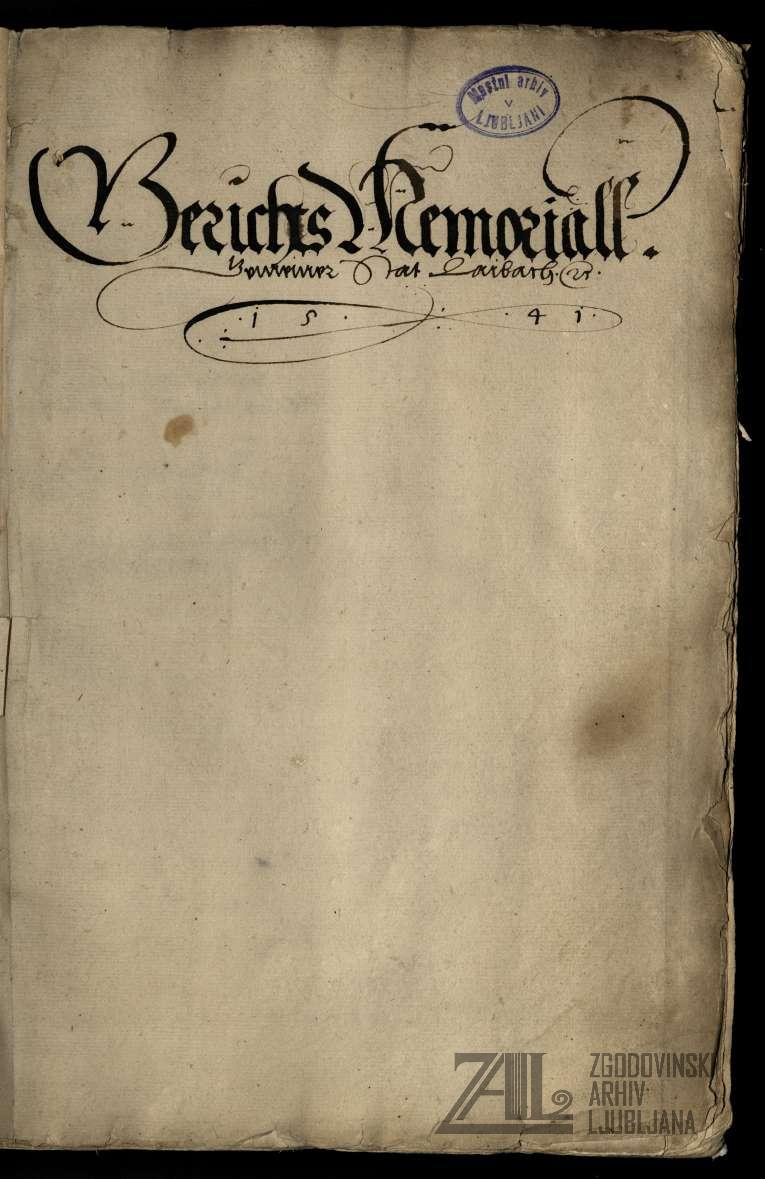 Mestni arhiv
v
LJUBLJANI
Gerichts Memoriall.
Gemeiner Stat Laibach. ꝛc.
· 1 5 · · 4 1 ·
ZAL
ZGODOVINSKI
ARHIV
LJUBLJANA